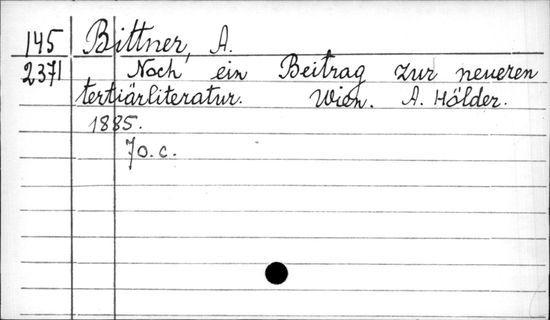 145 Bittner, A.
2371 Noch ein Beitrag zur neueren
tertiärliteratur. Wien. A. Hölder.
1885.
70. c.